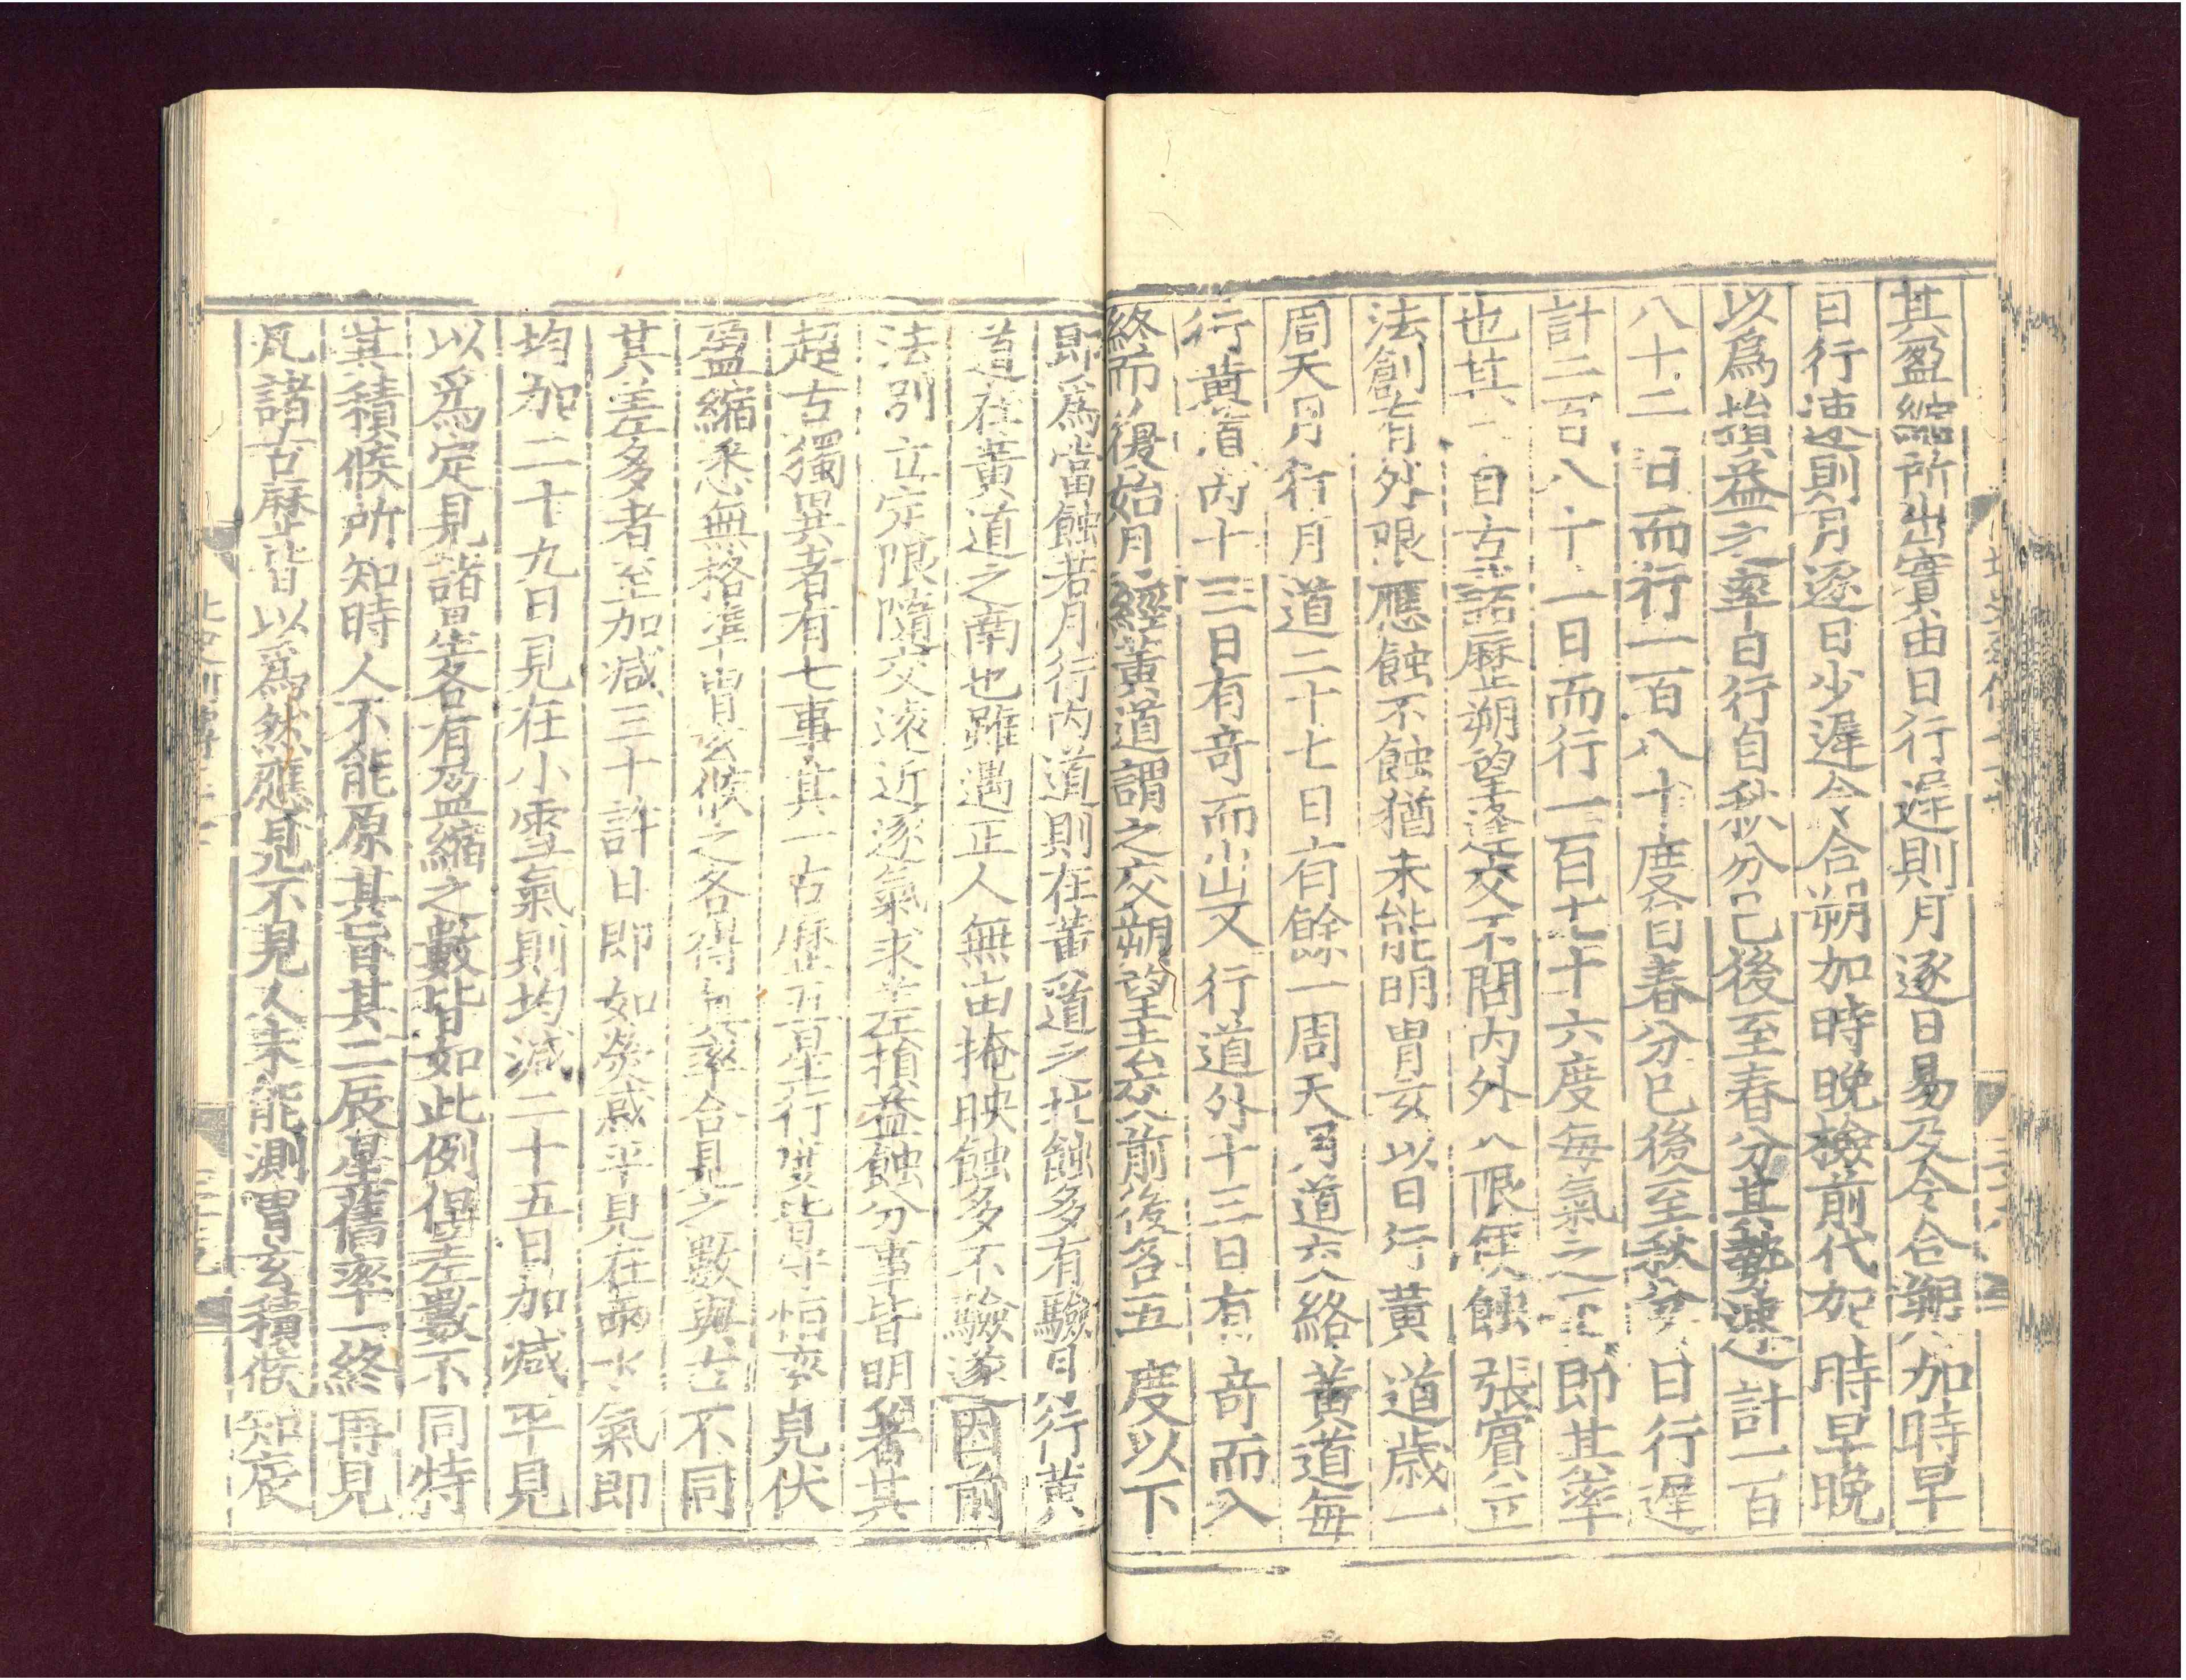 其盈縮所出實由日行遲則月逐日易及令合朔加時早
日行速則月逐日少遲令合朔加時晚檢前代加時早晚
以爲損益之率日行自秋分已後至春分其勢速計一百
八十二日而行一百八十度自春分已後至秋分日行遲
計一百八十二日而行一百七十六度每氣之下即其率
也其一自古諸曆朔望逢交不問內外入限便蝕張賓立
法創有外限應蝕不蝕猶未能明胄玄以日行黃道歲一
周天月行月道二十七日有餘一周天月道交絡黃道每
行黃道內十三日有奇而出又行道外十三日有奇而入
終而復始月經黃道謂之交朔望去交前後各五度以下
即爲當蝕若月行內道則在黃道之北蝕多有驗月行黃
道在黃道之南也雖遇正人無由掩映蝕多不驗遂因前
法別立定限隨交遠近逐氣求差損益蝕分事皆明著其
超古獨異者有七事其一古曆五星行度皆守恒率見伏
盈縮悉無格準胄玄候之各得其率合見之數與古不同
其差多者至加減三十許日即如熒惑平見在雨水氣即
均加二十九日見在小雪氣則均減二十五日加減平見
以爲定見諸星各有盈縮之數皆如此例但差數不同特
其積候所知時人不能原其旨其二辰星舊率一終再見
凡諸古曆皆以爲然應見不見人未能測胄玄積候知辰